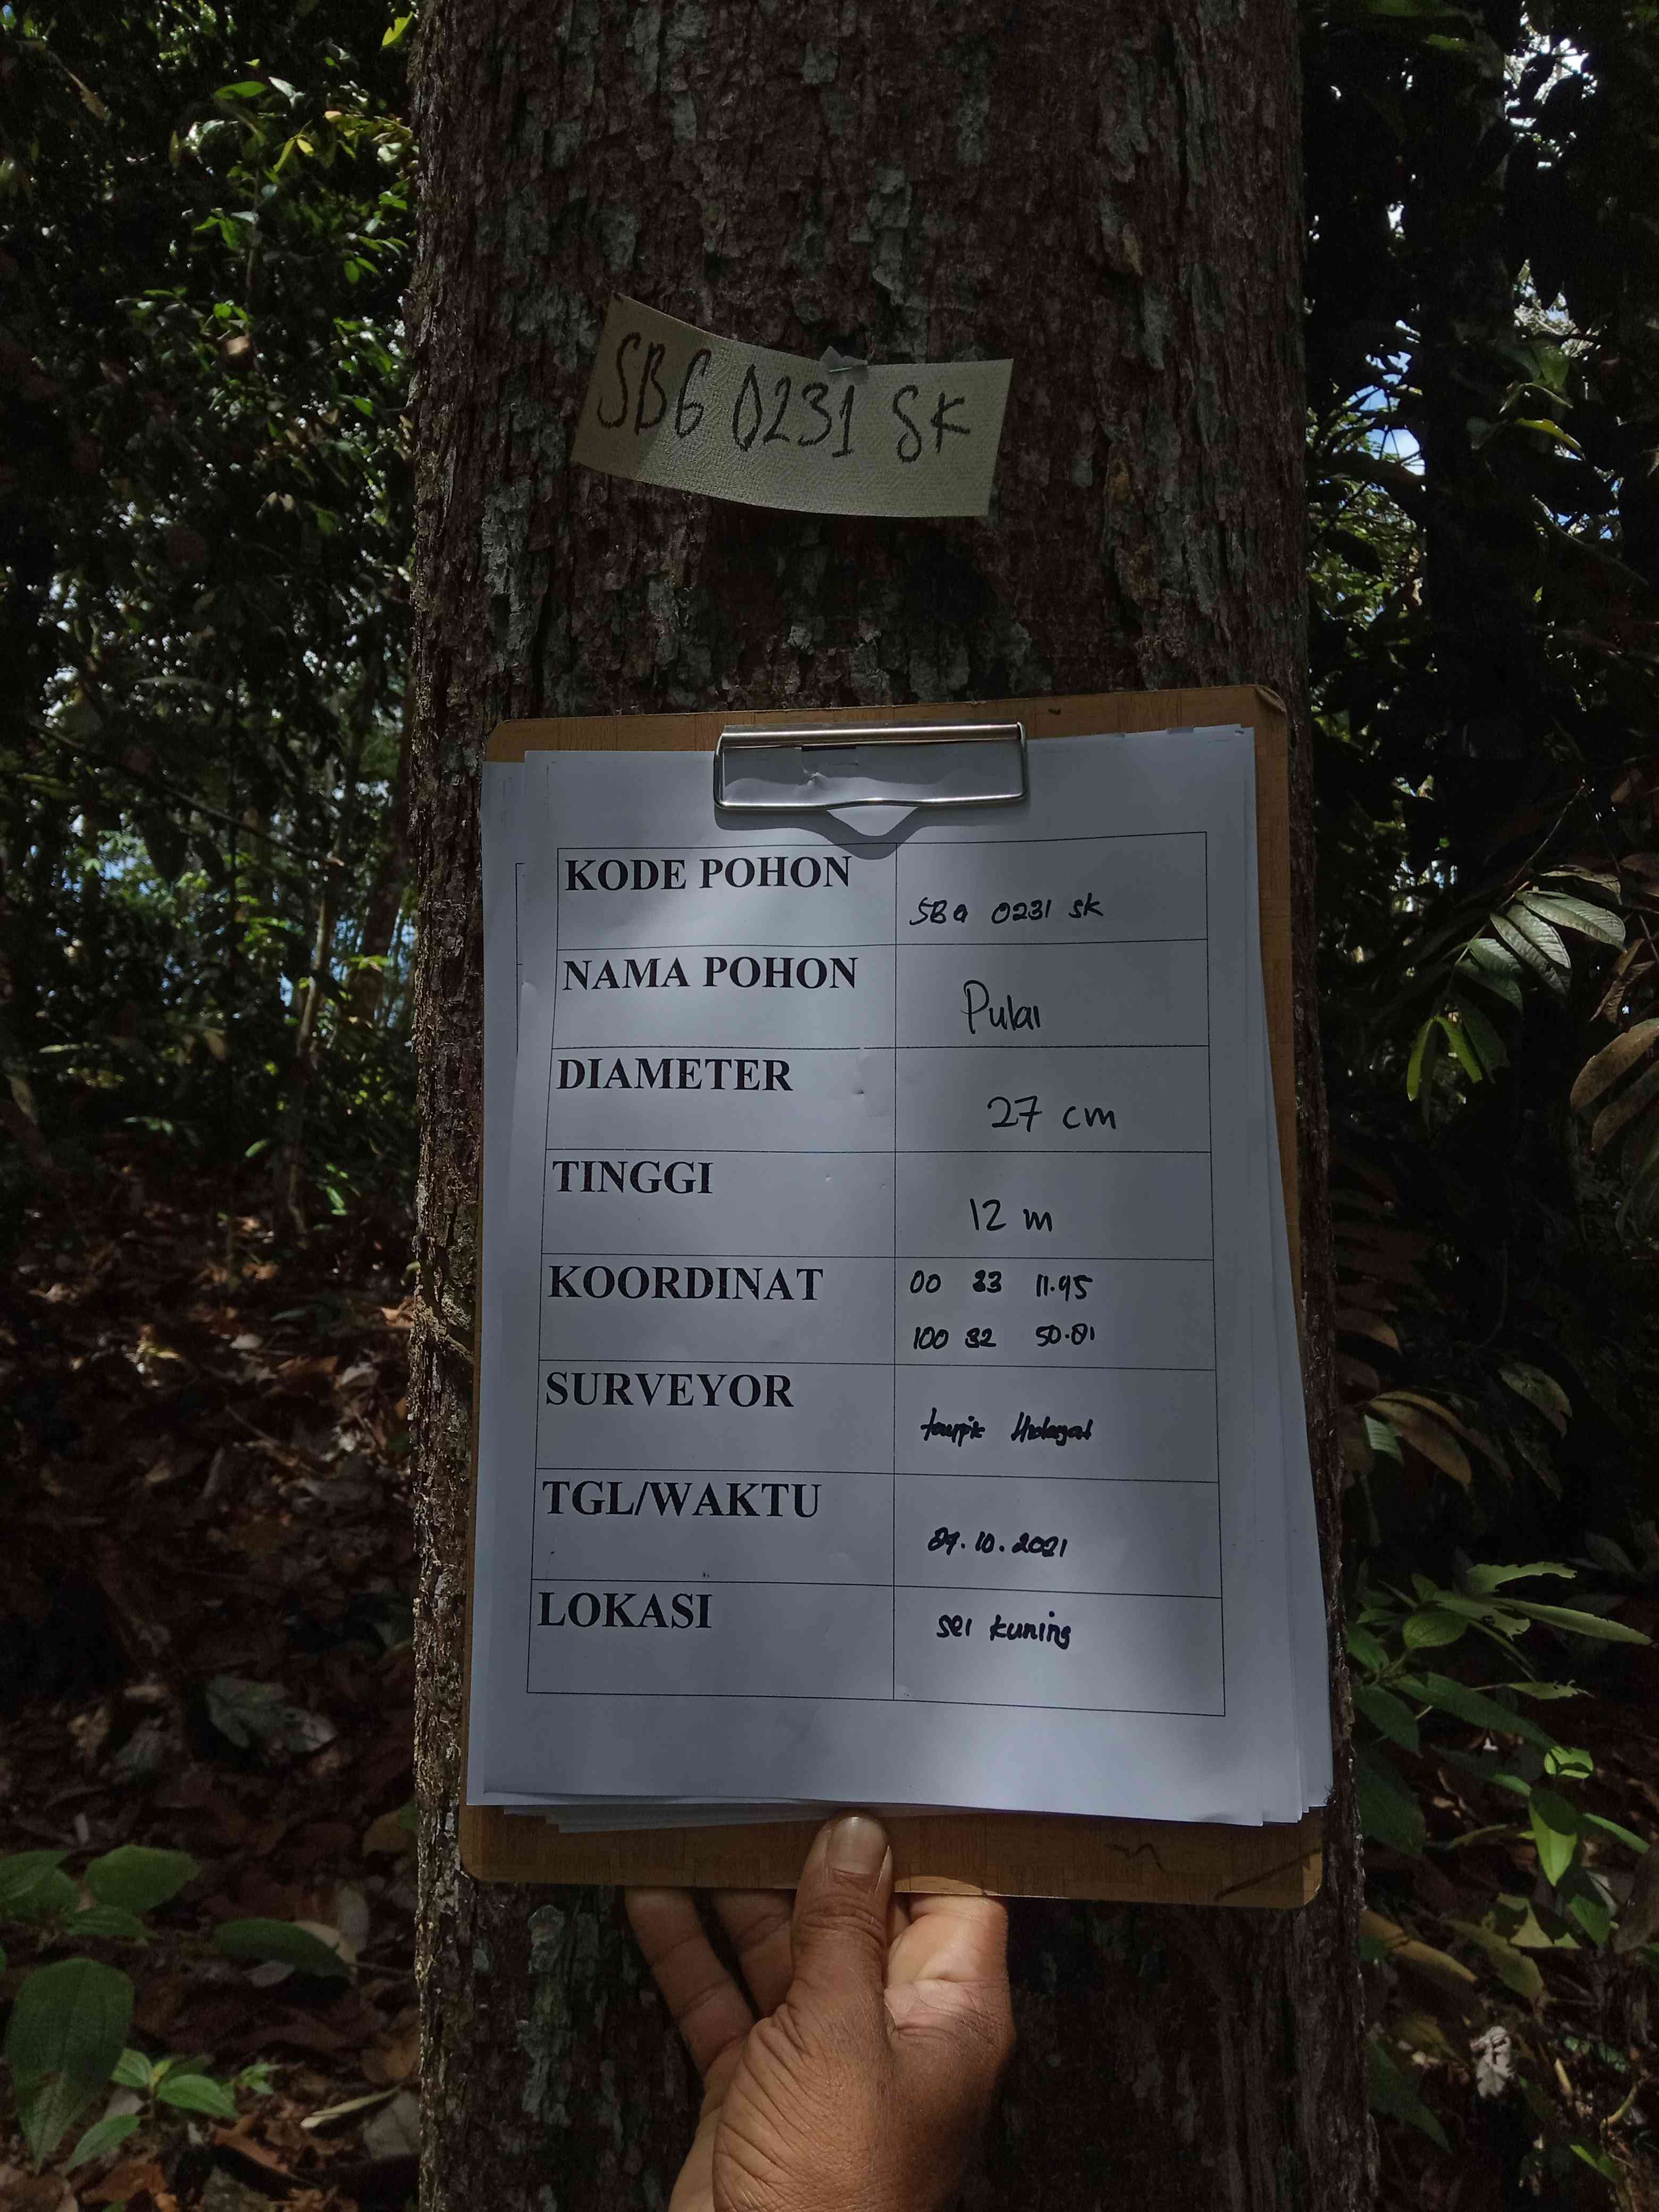 SBG 0231 SK
KODE POHON
SBG 0231 SK
NAMA POHON
Pulai
DIAMETER
27 cm
TINGGI
12 m
KOORDINAT
00 33 11.95
100 32 50.81
SURVEYOR
taupik Hidayat
TGL/WAKTU
.10.2021
LOKASI
sei kuning